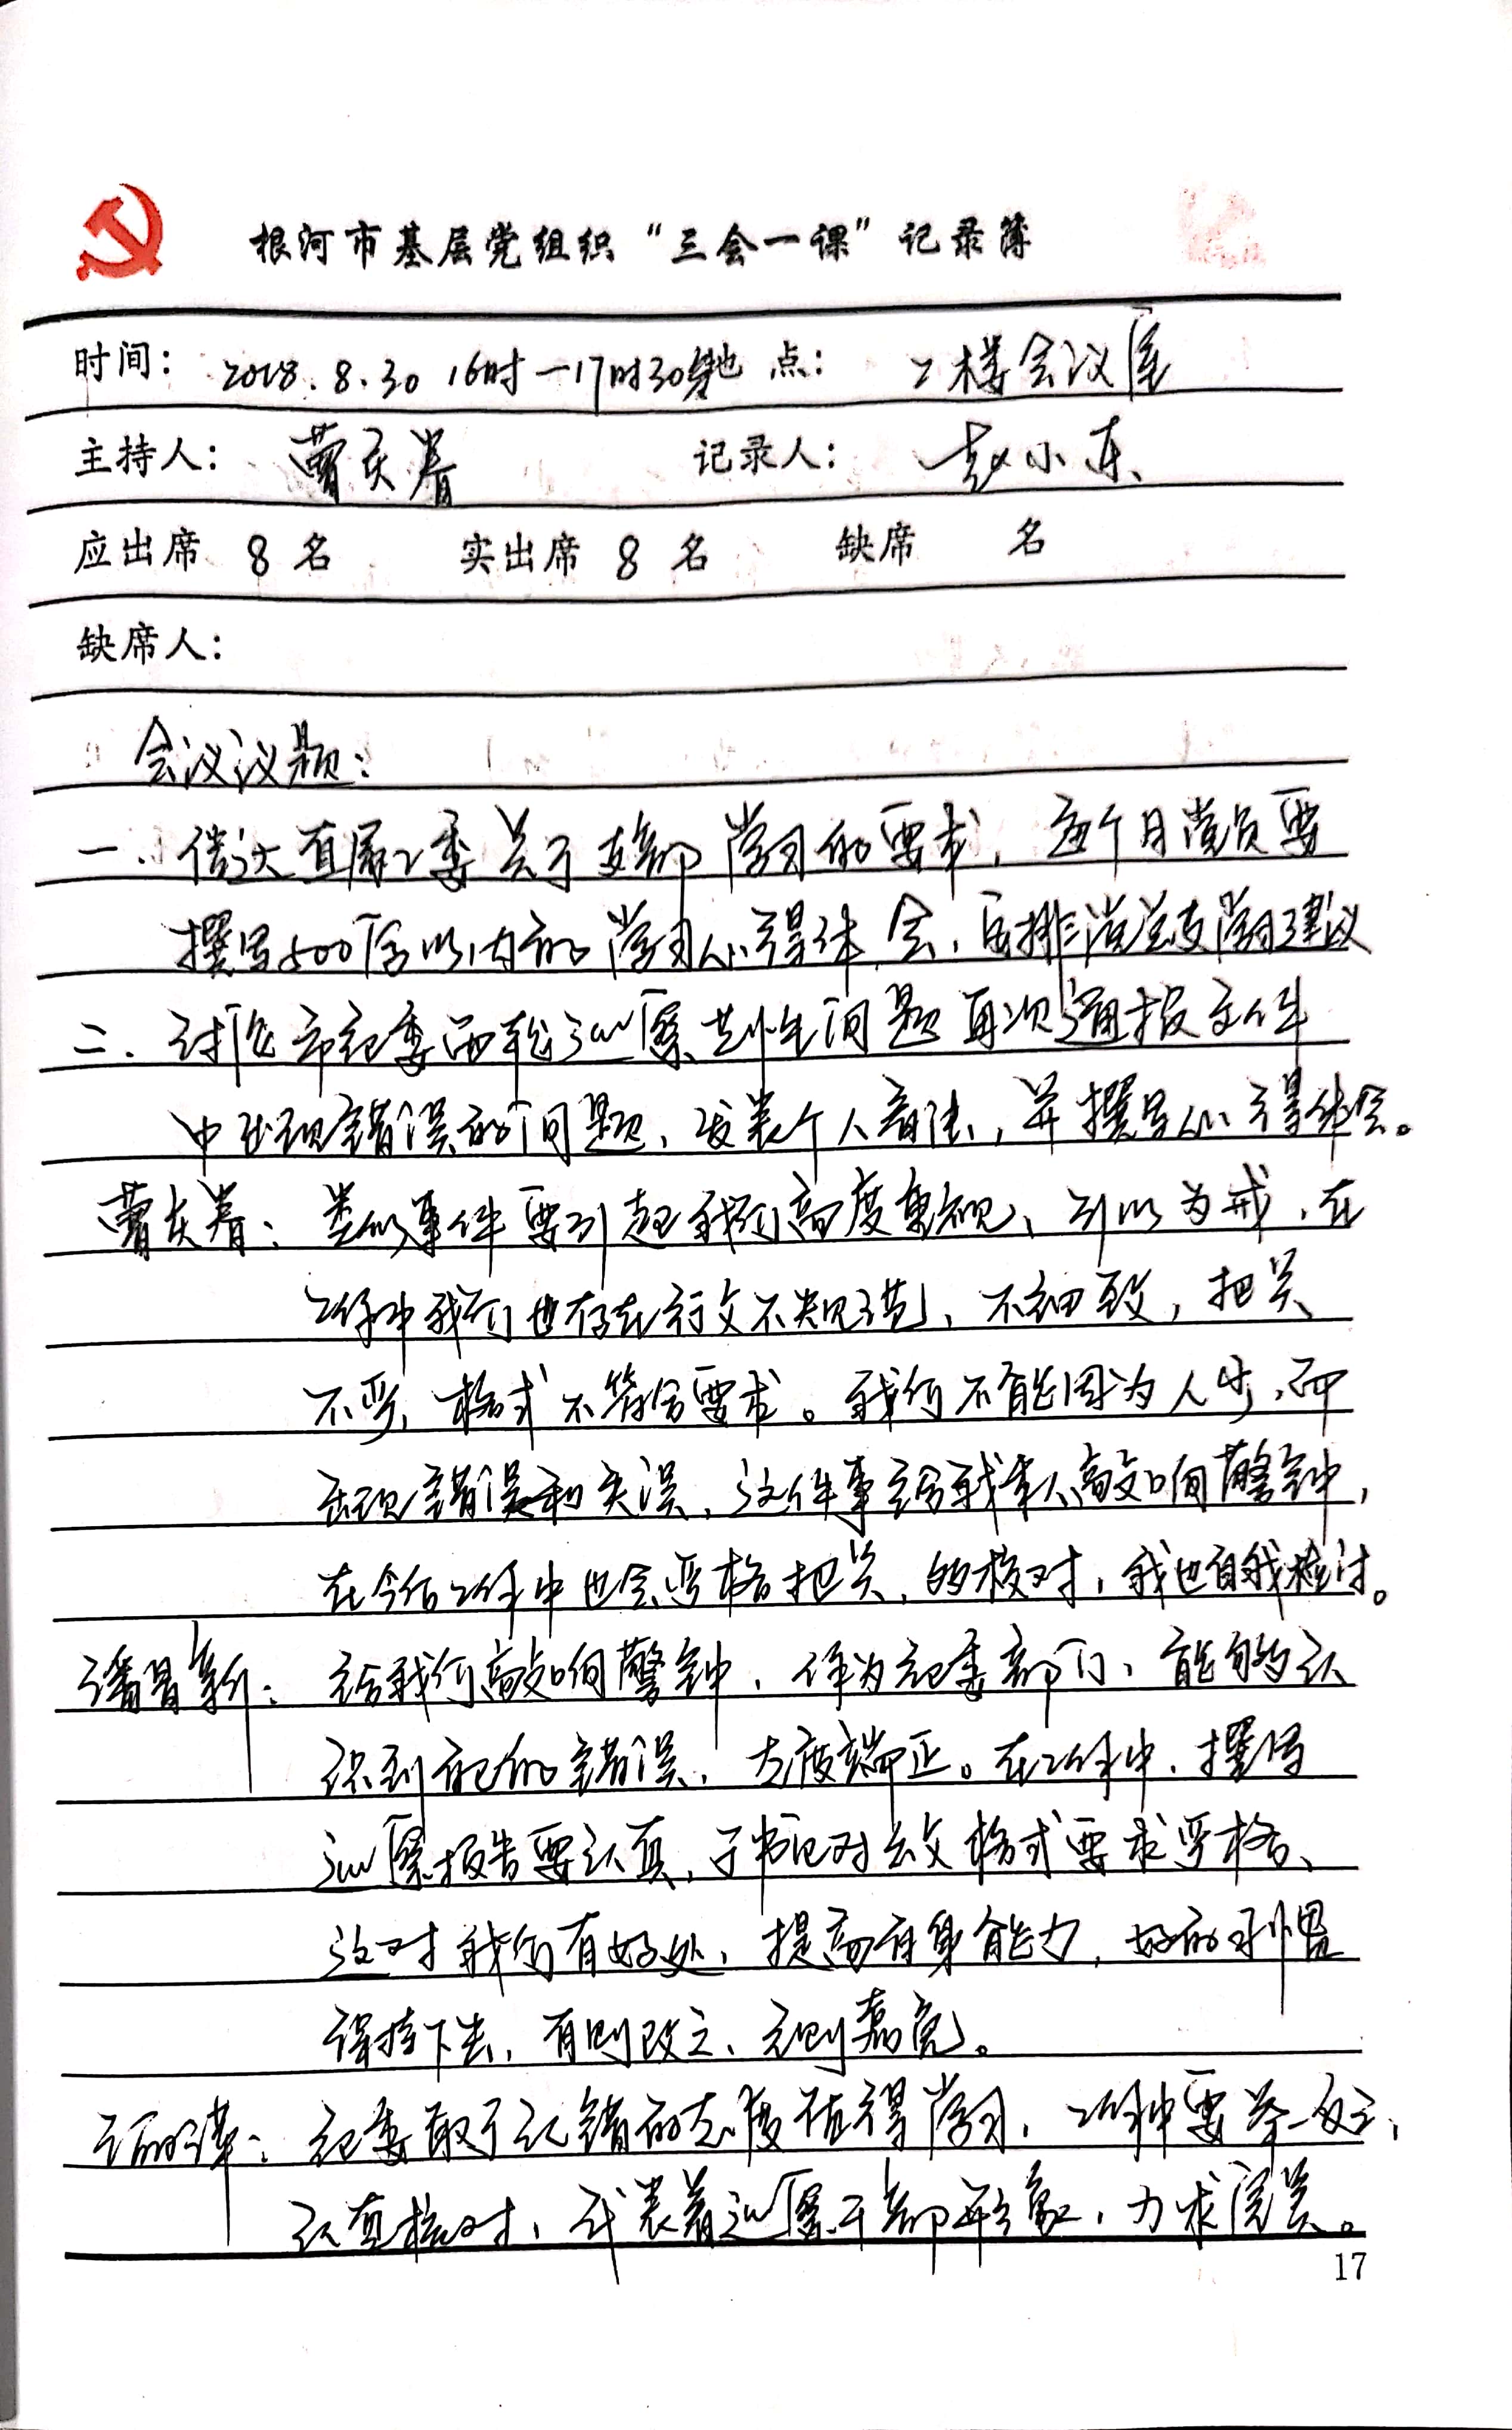 根河市基层党组织“三会一课”记录簿
时间： 2018.8.30 16时—17时30分 地点： 2楼会议室
主持人： 曹庆春 记录人： 赵小东
应出席 8 名 实出席 8 名 缺席 名
缺席人：
会议议题：
一、传达直属工委关于支部学习的要求，每个月党员要
撰写500字以内的学习心得体会，安排党总支学习建议
二、讨论市纪委两轮巡察共性问题再次通报文件
中出现错误的问题，发表个人看法，并撰写心得体会。
曹庆春：类似事件要引起我们高度重视，引以为戒，在
工作中我们也存在行文不规范、不细致，把关
不严，格式不符合要求。我们不能因为人少，而
出现错误和失误，这件事给我本人敲响警钟，
在今后工作中也会严格把关，的核对，我也自我检讨。
给我们敲响警钟，作为纪委部门，能够认
识到自己的错误，态度端正。在工作中，撰写
巡察报告要认真，于书记对公文格式要求严格、
这对我们有好处，提高自身能力，好的习惯
保持下去，有则改之、无则嘉勉。
纪委敢于认错的态度值得学习，工作中要举一反三，
认真核对，代表着巡察干部形象，力求完美。
17